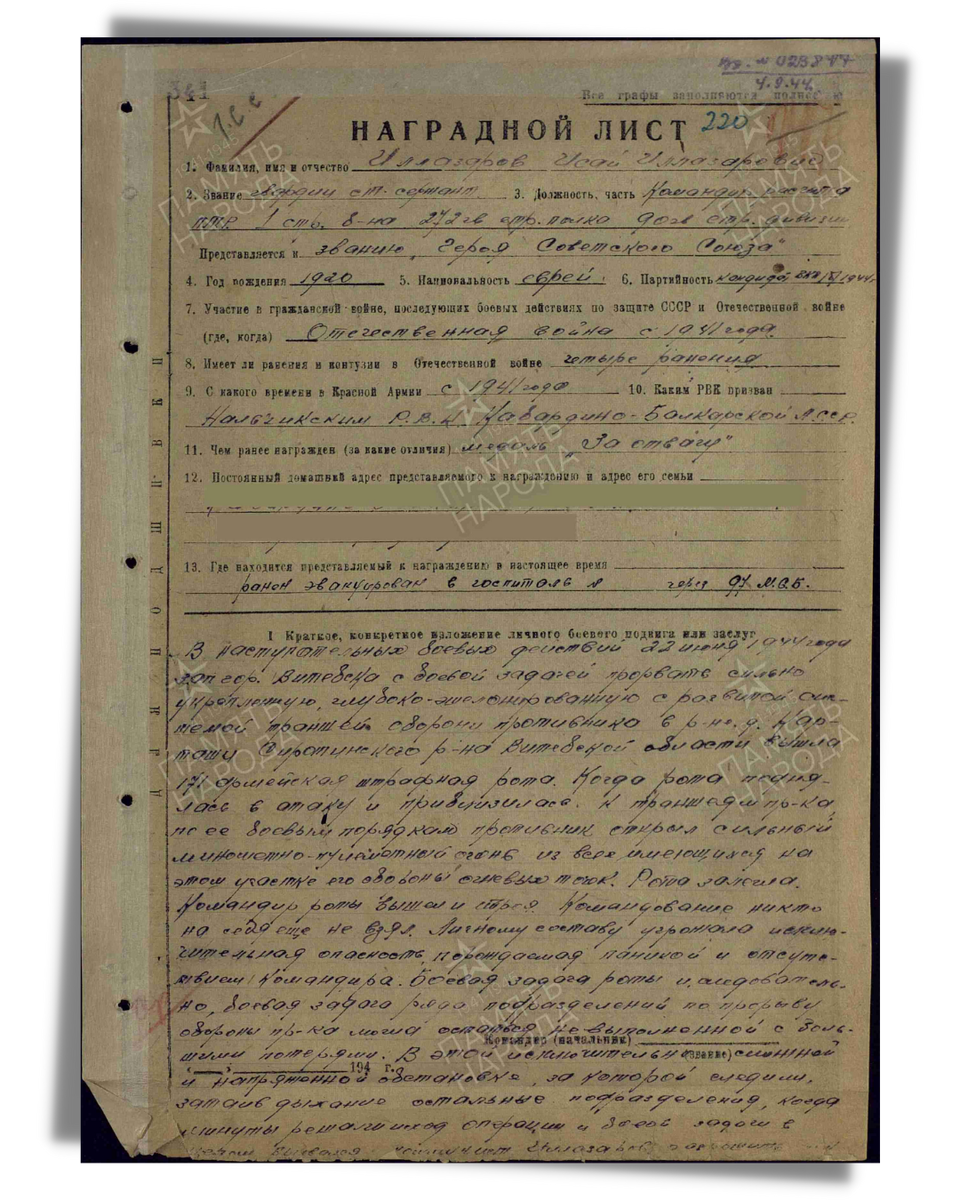 341
Вх. № 02984
4.9.44.
Все графы заполняются полностью
НАГРАДНОЙ ЛИСТ 220
1. Фамилия, имя и отчество Иллазаров Исай Иллазарович
2. Звание гвардии ст. сержант 3. Должность, часть Командир расчета
ПТР 1 стр. б-на 272 гв стр. полка 90 гв стр. дивизии
Представляется к званию „Героя Советского Союза"
4. Год рождения 1920 5. Национальность еврей. 6. Партийность кандидат ВКП(б) 1944г
7. Участие в гражданской войне, последующих боевых действиях по защите СССР и Отечественной войне
(где, когда) Отечественная война с 1941 года.
8. Имеет ли ранения и контузии в Отечественной войне четыре ранения
9. С какого времени в Красной Армии с 1941 года 10. Каким РВК призван
Нальчикским Р.В.К. Кабардино-Балкарской АССР.
11. Чем ранее награжден (за какие отличия) медаль „За отвагу"
12. Постоянный домашний адрес представляемого к награждению и адрес его семьи
13. Где находится представляемый к награждению в настоящее время
ранен эвакуирован в госпиталь № через 97 М.С.Б.
I Краткое, конкретное изложение личного боевого подвига или заслуг
В наступательных боевых действий 22 июня 1944 года
зап гор. Витебска с боевой задачей прорвать сильно
укрепленную, глубоко-эшелонированную с развитой сис-
темой траншей оборони противника в р-не д. Кар-
таши Сиротинского р-на Витебской области вышла
171 армейская штрафная рота. Когда рота подня-
лась в атаку и приблизилась к траншеям пр-ка,
по ее боевым порядкам противник открыл сильный
минометно-пулеметный огонь из всех имеющихся на
этом участке его обороны огневых точек. Рота залегла.
Командир роты вышел и строя. Командование никто
на себя еще не взял. Личному составу угрожала исклю-
чительная опасность, порождаемая паникой и отсутс-
твием командира. Боевая задача роты и, следователь-
но, боевая задача ряда подразделений по прорыву
обороны пр-ка могла остаться невыполненной с боль-
Командир (начальник)
шими потерями. В этой исключительно сложной
(звание)
„ " 194 г.
и напряженной обстановке, за которой следили,
затаив дыхание остальные подразделения, когда
минуты решали исход операции и боевой задачи в
целом Иллазаров